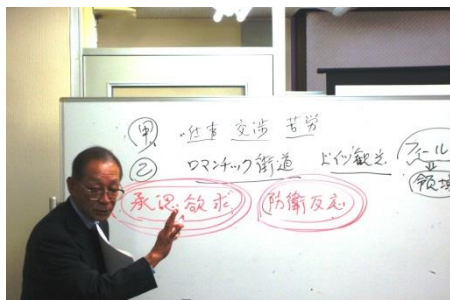 甲 仕事 交渉 苦労
乙 ロマンチック街道 ドイツ観光
フィール
⇓
領域
承認欲求 防衛反応